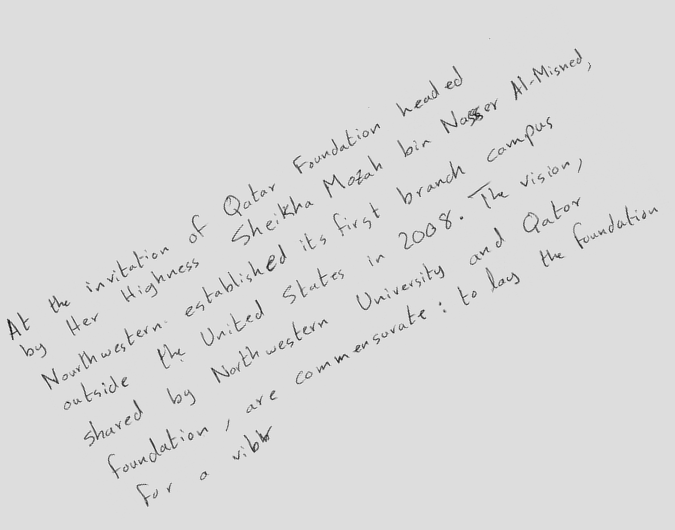 At the invitation of Qatar Foundation headed
by Her Highness Sheikha Mozah bin Nasser Al-Misned,
Nourthwestern established its first branch campus
outside the United States in 2008. The vision,
shared by Northwestern University and Qator
foundation, are commensurate: to lay the foundation
for a vibbr